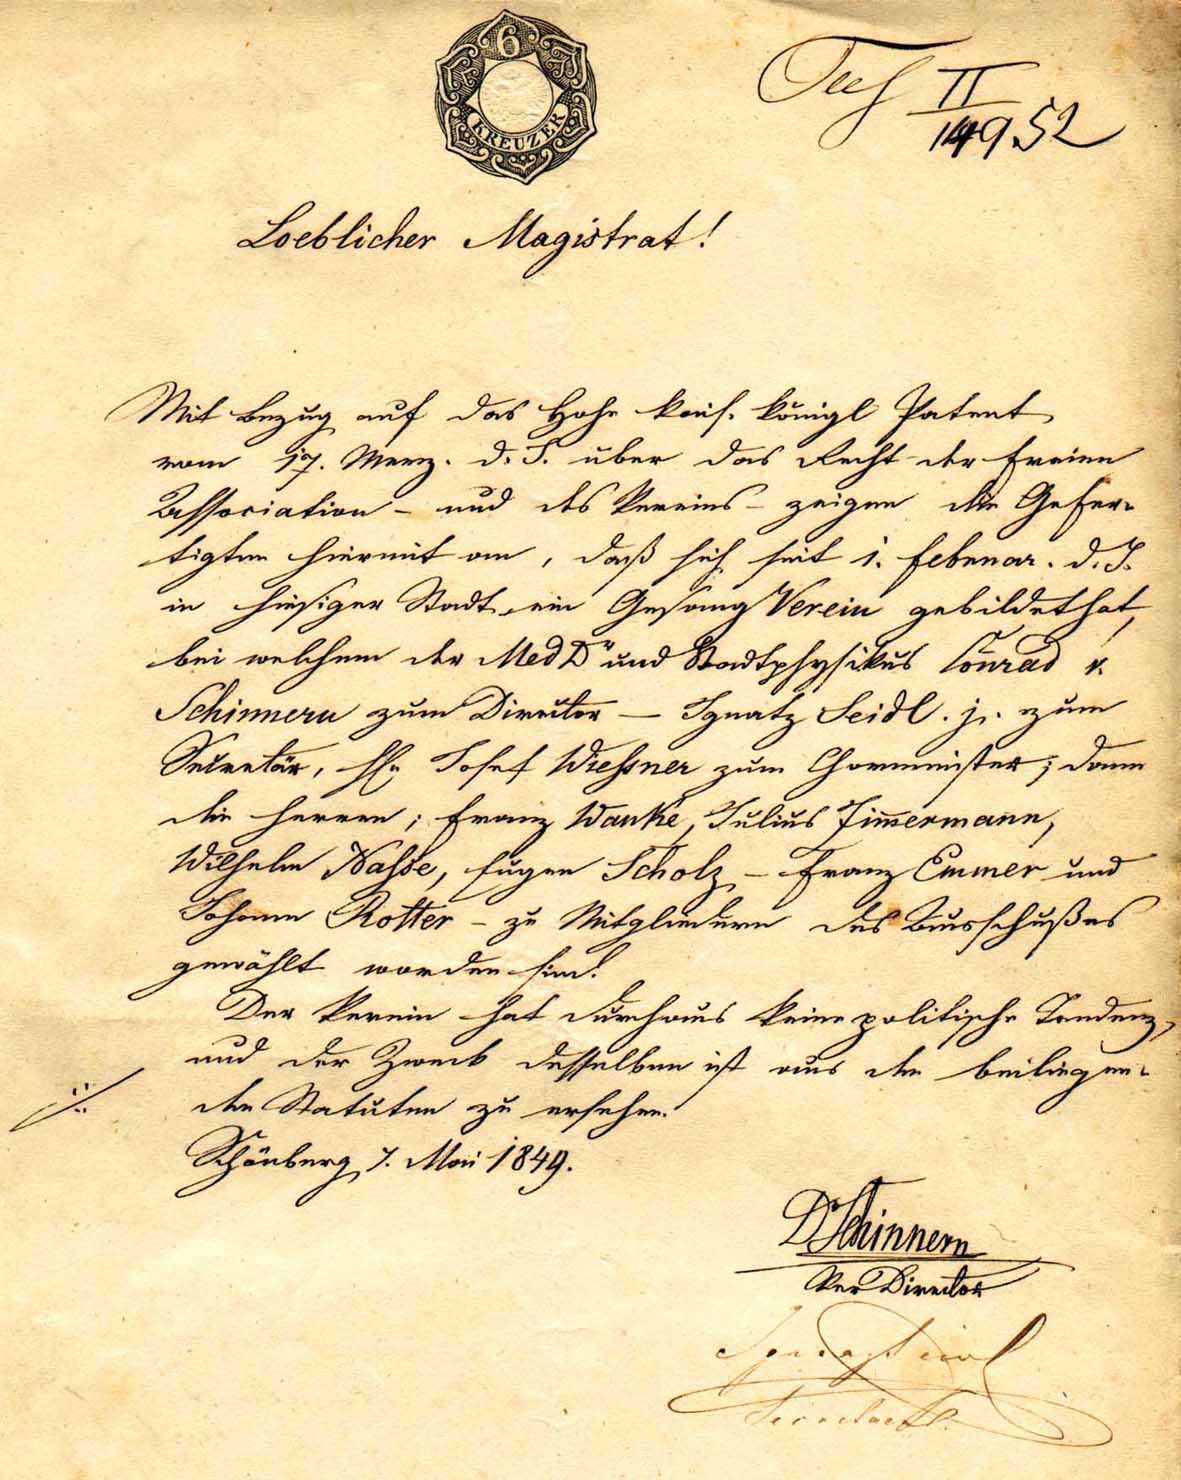 6
KREUZER
II
149.52
Loeblicher Magistrat!
Mit Bezug auf das Hohe kais. königl Patent
vom 17. Merz. d. J. über das Recht der freien
Association - und des Vereins - zeigen die Gefer-
tigten hiermit an, daß sich seit 1. Februar. d. J.
in hiesiger Stadt ein Gesang Verein gebildet hat,
bei welchem der Med Dr und Stadtphysikus Conrad v.
Schinnern zum Director — Ignatz Seidl. j. zum
Secretär, Hr. Josef Wiessner zum Chormeister; dann
die Herren; Franz Wanke, Julius Zimmermann,
Wilhelm Nasse, Eugen Scholz - Franz Emmer und
Johann Rotter - zu Mitgliedern des Ausschußes
gewählt worden sind.
Der Verein hat durchaus keine politische Tendenz,
und der Zweck desselben ist aus den beiliegen-
den Statuten zu ersehen.
Schönberg 7. Mai 1849.
D Schinnern
Ver Director
Ignaz Seidl
Secretaer